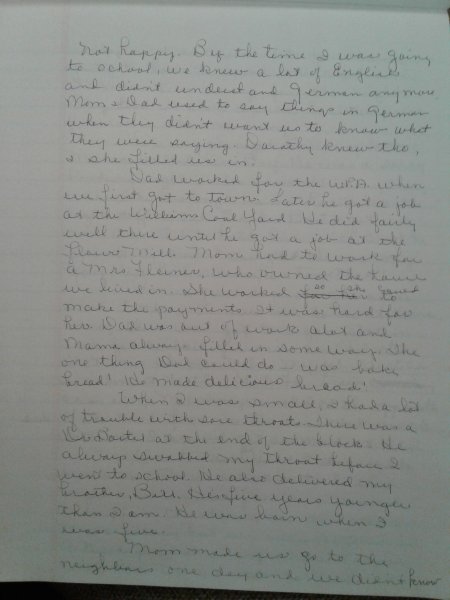 not happy. By the time I was going
to school, we knew a lot of English
and didn't understand German anymore.
Mom & Dad used to say things in German
when they didn't want us to know what
they were saying. Dorothy knew tho,
& she filled us in.
Dad worked for the W.P.A. when
we first got to town. Later he got a job
at the Williams Coal Yard. He did fairly
well there until he got a job at the
Flour Mill. Mom had to work for
a Mrs. who owned the house
we lived in. She worked so she could
make the payments. It was hard for
her. Dad was out of work alot and
Mama always filled in some way. The
one thing Dad could do - was bake
bread! He made delicious bread!
When I was small, I had a lot
of trouble with sore throats. There was a
Dr. at the end of the block. He
always swabbed my throat before I
went to school. He also delivered my
brother, Bill. He's five years younger
than I am. He was born when I
was five.
Mom made us go to the
neighbors one day and we didn't know